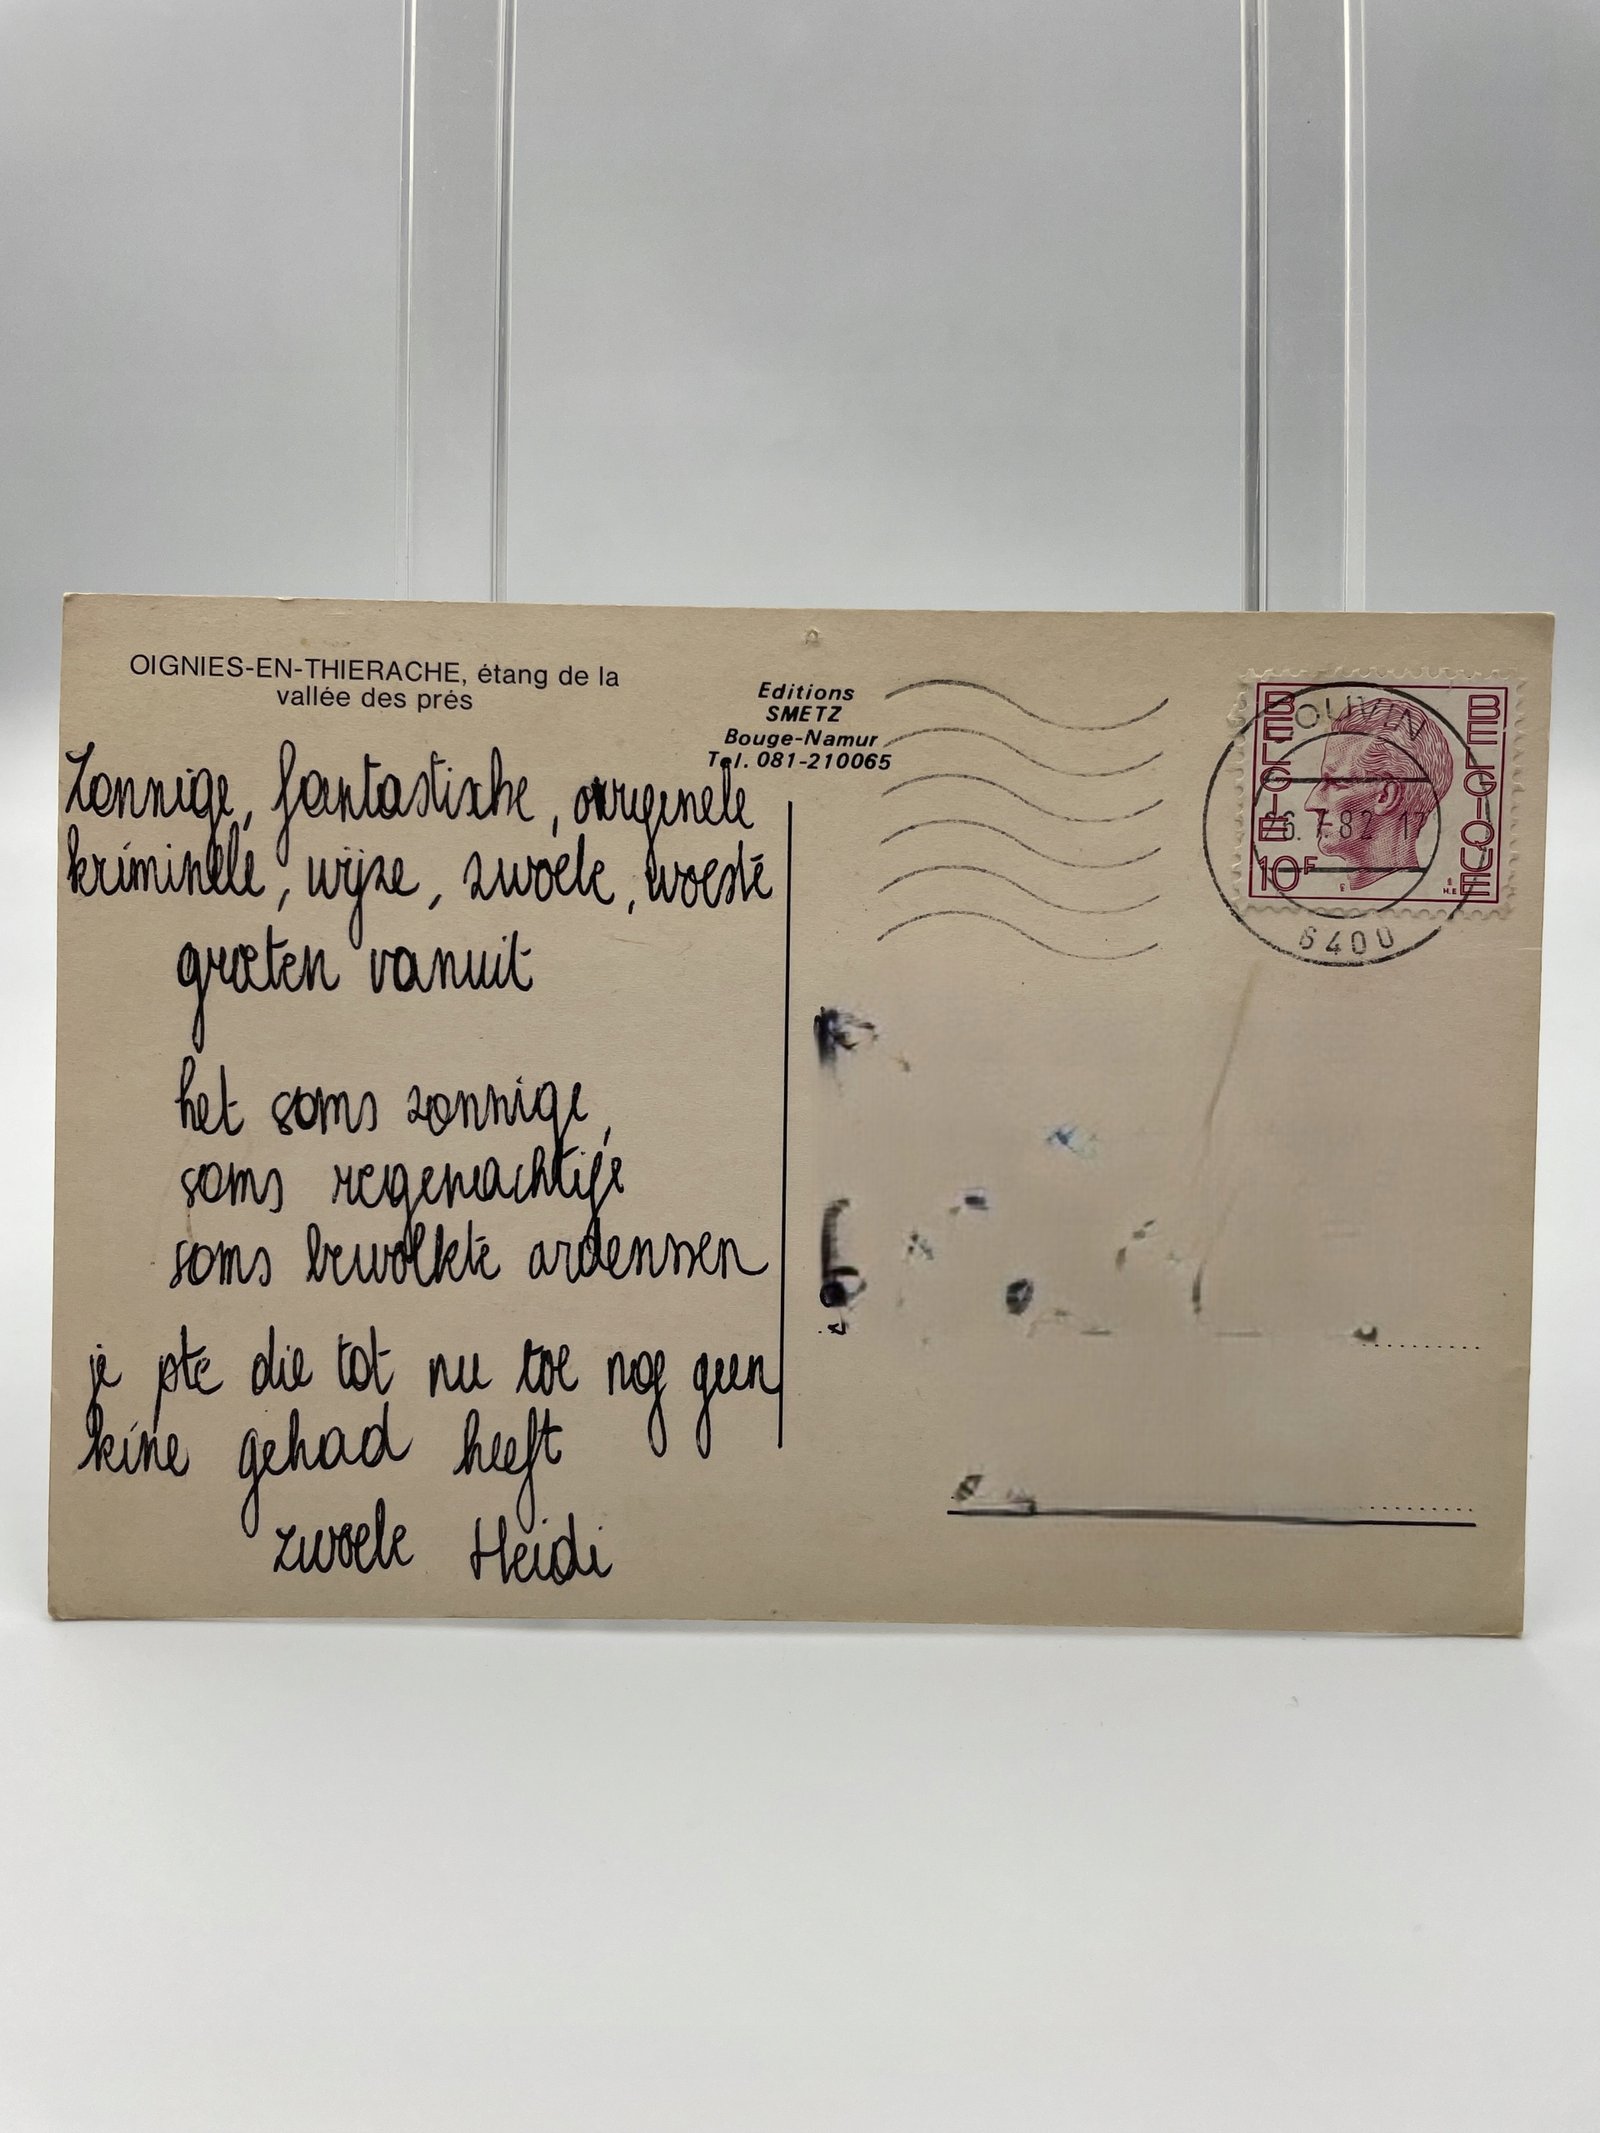 OIGNIES-EN-THIERACHE, étang de la
vallée des prés
Editions
SMETZ
Bouge-Namur
Tel. 081-210065
Zonnige, fantastische, orrigenele
kriminele, wijze, zwoele, woeste
groeten vanuit
het soms zonnige,
soms regenachtige
soms bewolkte ardennen
je pte die tot nu toe nog geen
kine gehad heeft
zwoele Heidi
BELGIE
BELGIQUE
10F
OUVIN
6.7.82
6400